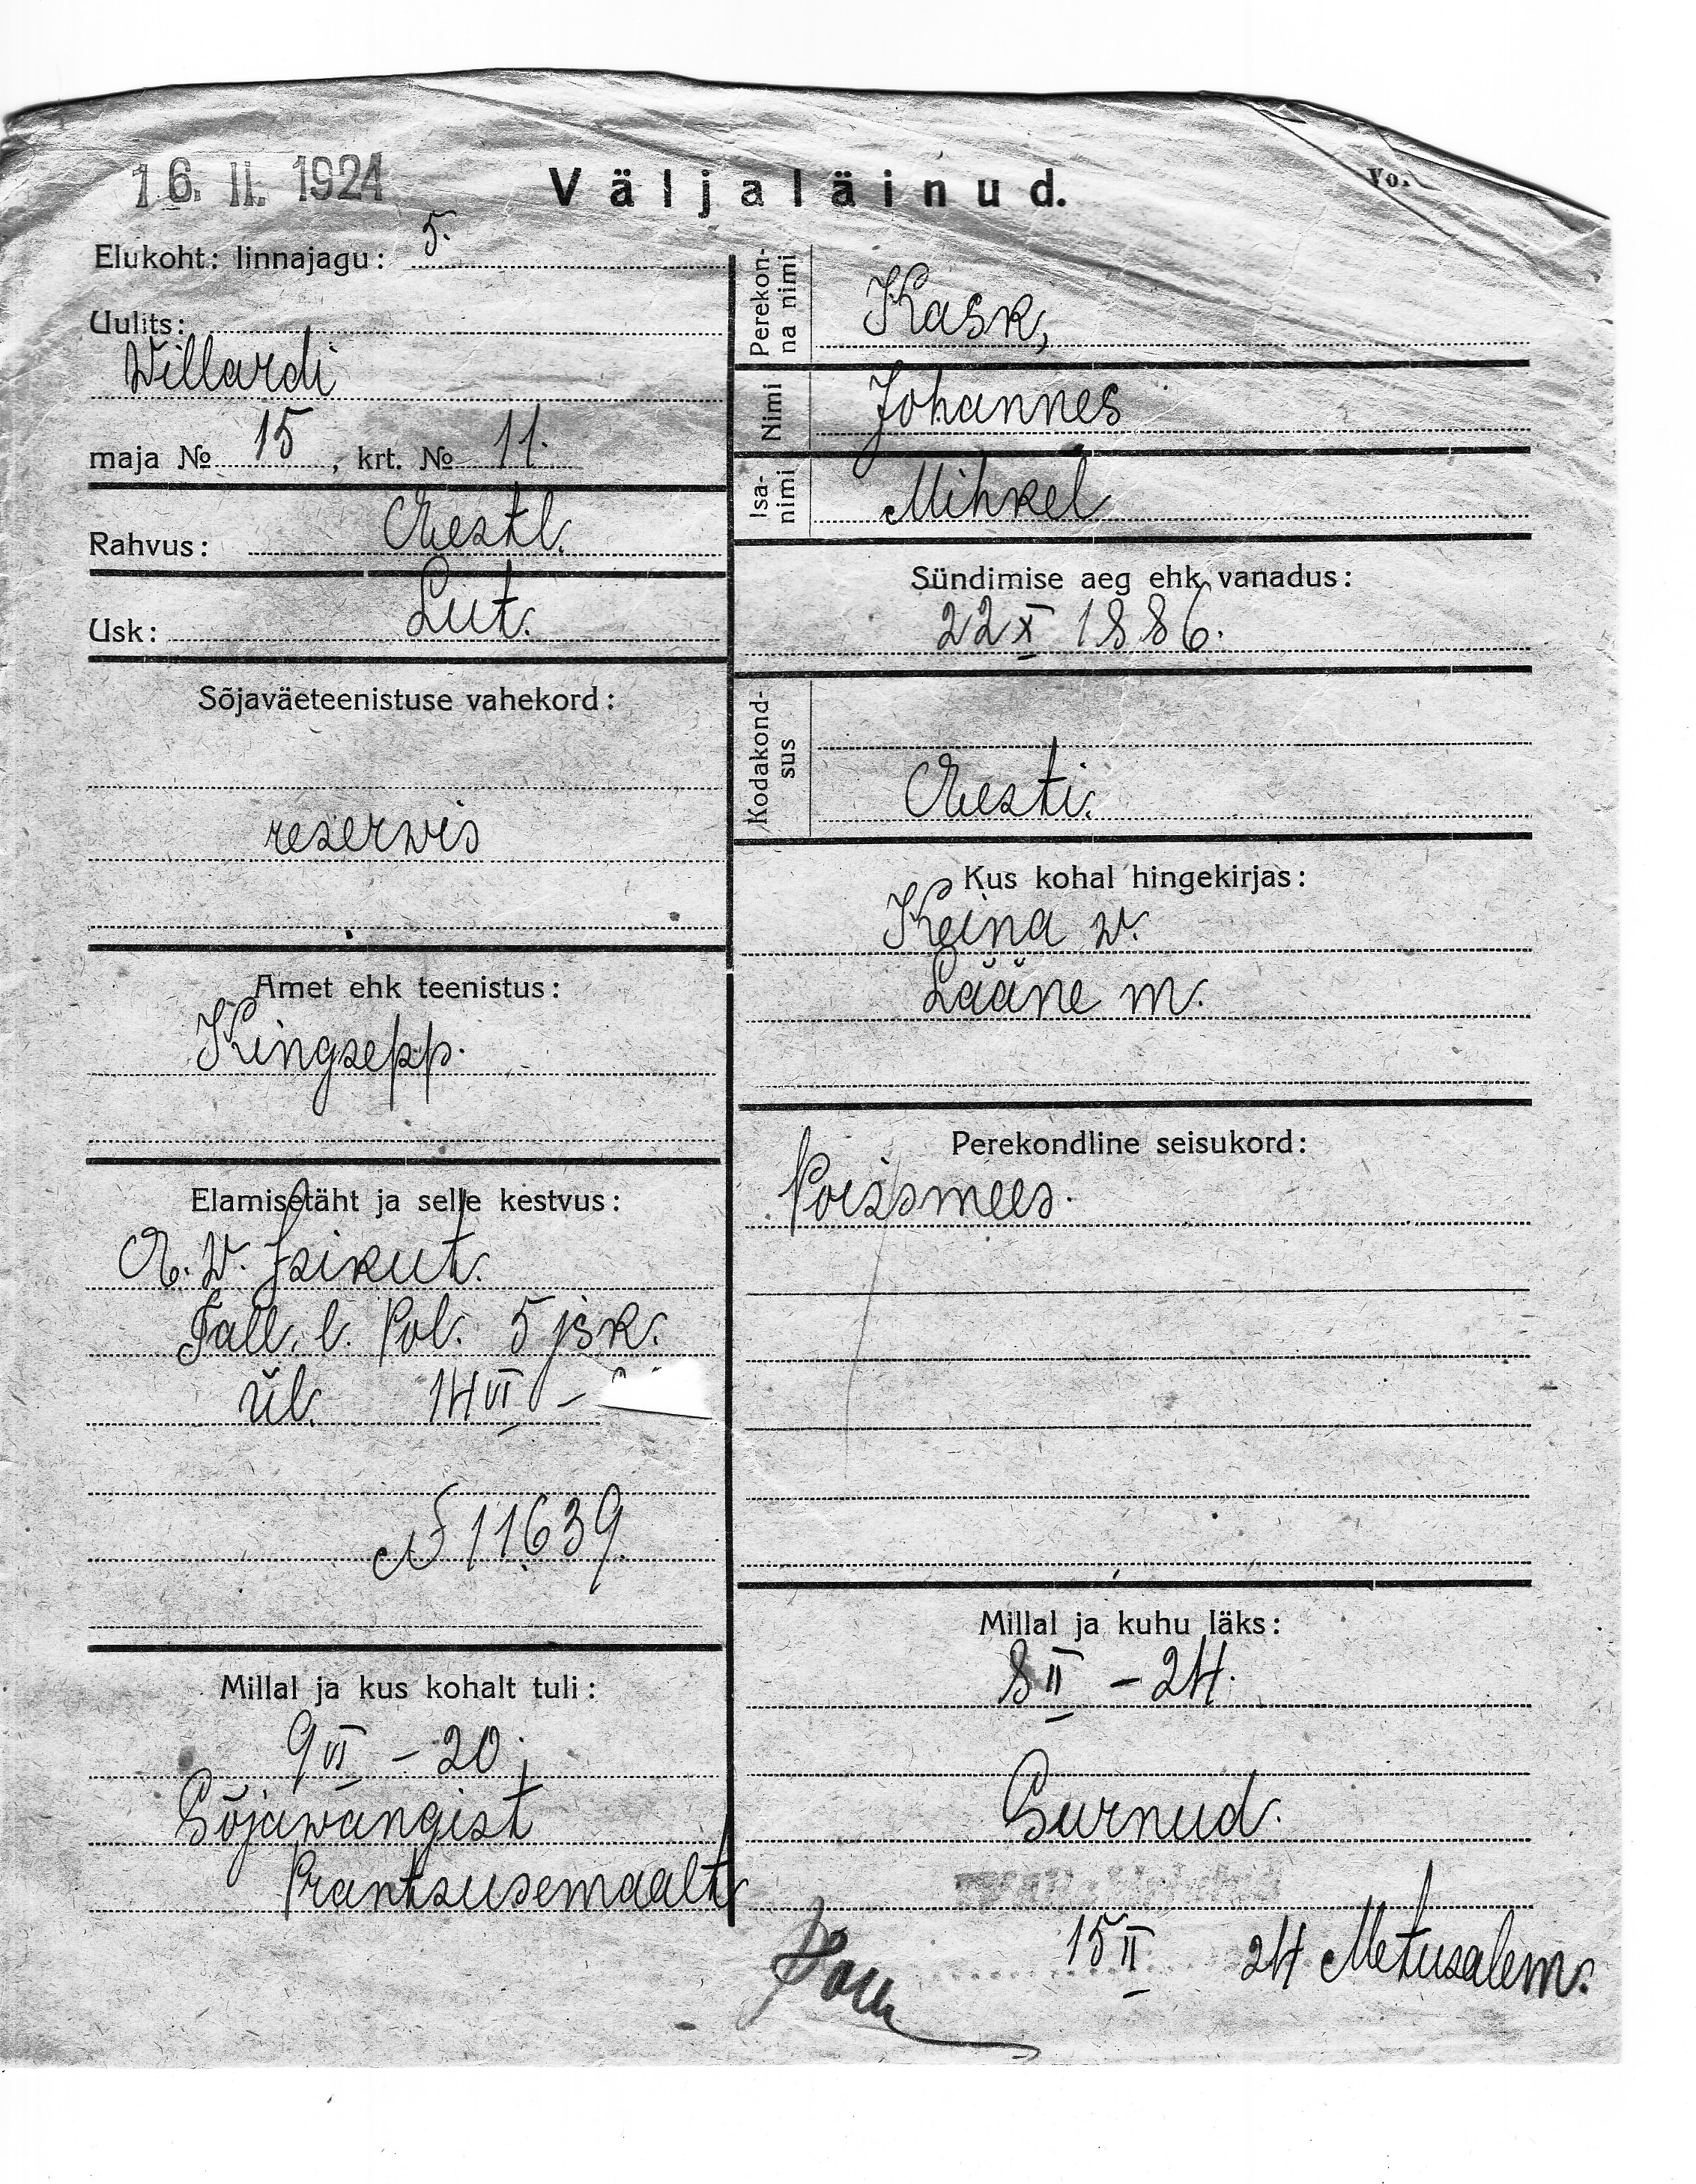 16. II. 1924
Väljaläinud.
Vo.
Elukoht: linnajagu: 5.
Uulits:
Willardi
maja № 15, krt. № 11.
Rahvus: Eestl.
Usk: Lut.
Sõjaväeteenistuse vahekord:
reserwis
Amet ehk teenistus:
Kingsepp.
Elamisetäht ja selle kestvus:
E. W. Isikut.
Tall. l. Pol. 5 jsk.
ül. 14 VI –
N 11639.
Millal ja kus kohalt tuli:
9 VI – 20;
Sõjawangist
Prantsusemaalt
Perekon-
na nimi
Kask,
Nimi
Johannes
Isa-
nimi
Mihkel
Sündimise aeg ehk vanadus:
22 X 1886.
Kodakond-
sus
Eesti.
Kus kohal hingekirjas:
Keina w.
Lääne m.
Perekondline seisukord:
Poissmees.
Millal ja kuhu läks:
8 II – 24.
Surnud.
15 II 24 Metusalem.